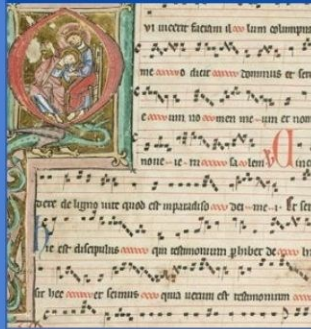 vi incerit faciam il lum columpn
me o dicit dominus et scr
e um no men me um et nom
noue ie ru sa lem V Qui
dere de ligno uite quod est in paradiso dei me i. Et scr
Hic est discipulus qui testimonium phibet de h
sit hec et scimus quia uerum est testimonium